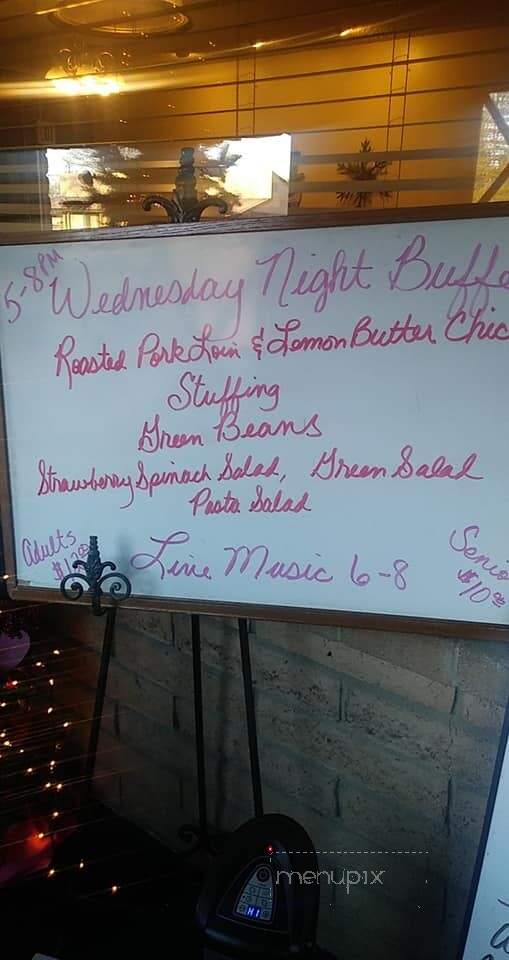 5-8 PM
Wednesday Night Buffe
Roasted Pork Loin & Lemon Butter Chic
Stuffing
Green Beans
Strawberry Spinach Salad, Green Salad
Pasta Salad
Adults
Live Music 6-8
Senio
$10.00
HI
menupix